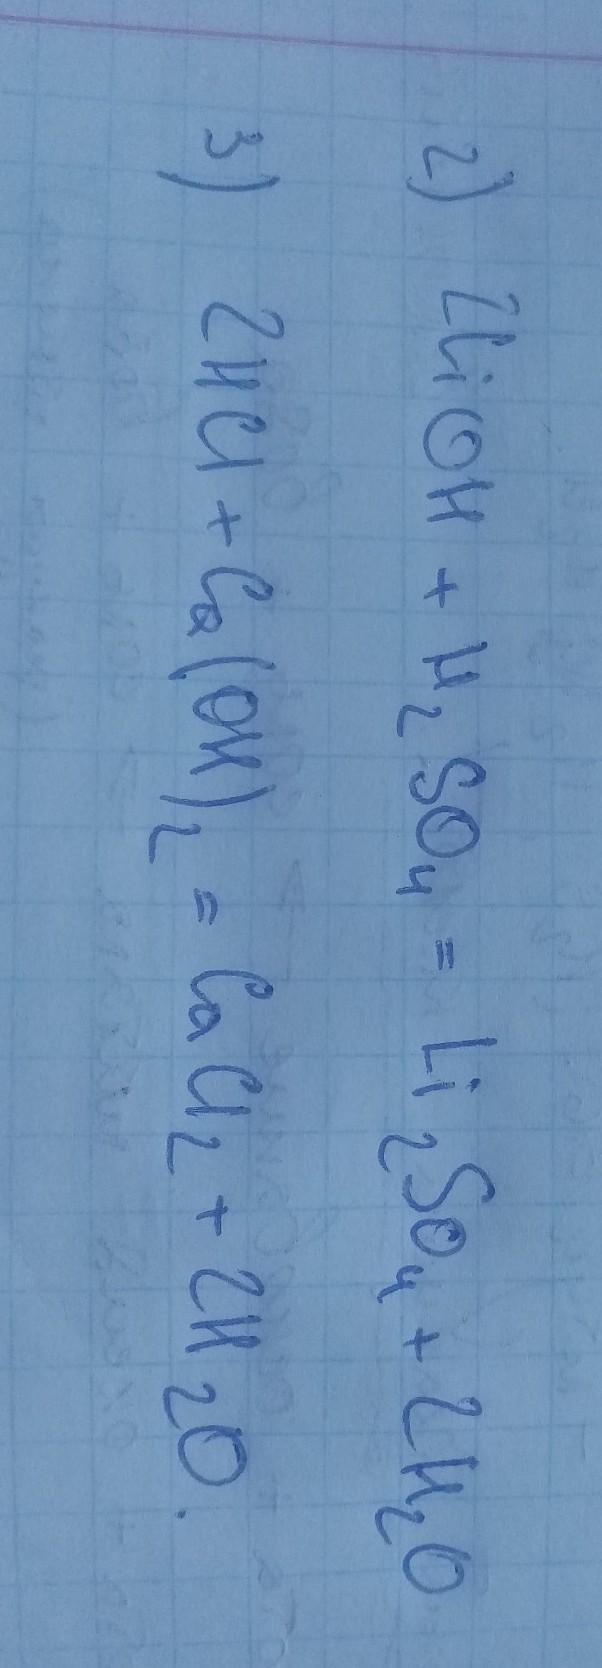 2) 2LiOH + H₂SO₄ = Li₂SO₄ + 2H₂O
3) 2HCl + Ca(OH)₂ = CaCl₂ + 2H₂O.